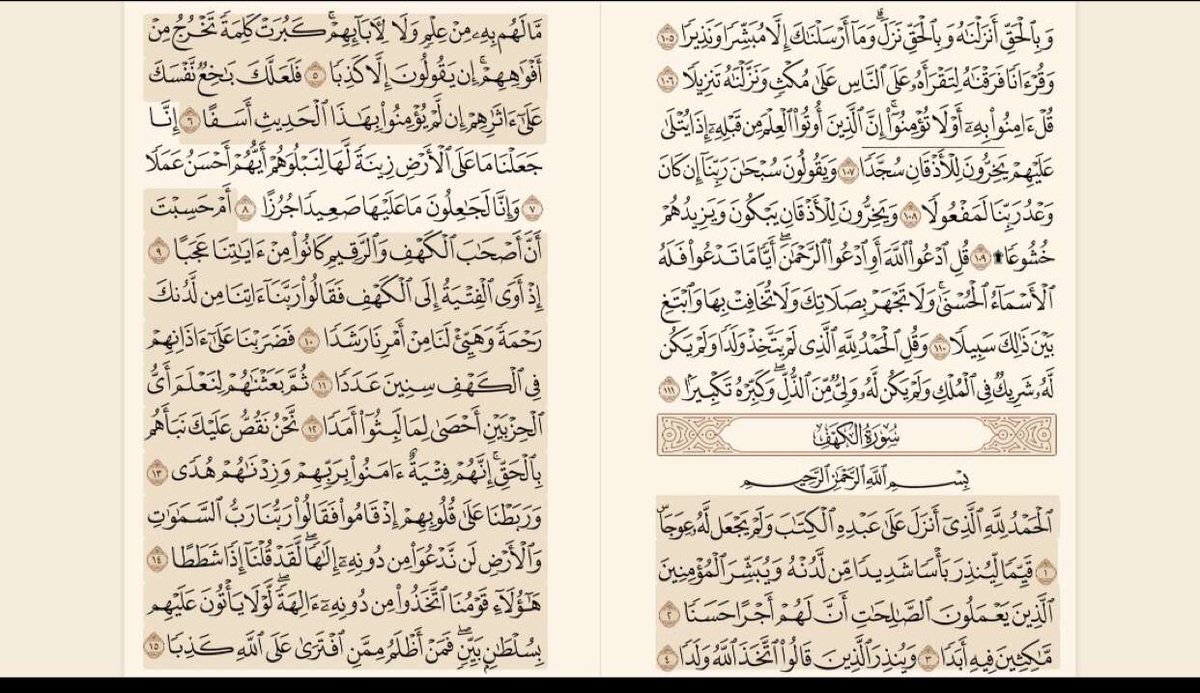 وَبِٱلْحَقِّ أَنزَلْنَٰهُ وَبِٱلْحَقِّ نَزَلَ ۗ وَمَآ أَرْسَلْنَٰكَ إِلَّا مُبَشِّرًا وَنَذِيرًا ١٠٥
وَقُرْءَانًا فَرَقْنَٰهُ لِتَقْرَأَهُۥ عَلَى ٱلنَّاسِ عَلَىٰ مُكْثٍ وَنَزَّلْنَٰهُ تَنزِيلًا ١٠٦
قُلْ ءَامِنُوا۟ بِهِۦٓ أَوْ لَا تُؤْمِنُوٓا۟ ۚ إِنَّ ٱلَّذِينَ أُوتُوا۟ ٱلْعِلْمَ مِن قَبْلِهِۦٓ إِذَا يُتْلَىٰ
عَلَيْهِمْ يَخِرُّونَ لِلْأَذْقَانِ سُجَّدًا ١٠٧ وَيَقُولُونَ سُبْحَٰنَ رَبِّنَآ إِن كَانَ
وَعْدُ رَبِّنَا لَمَفْعُولًا ١٠٨ وَيَخِرُّونَ لِلْأَذْقَانِ يَبْكُونَ وَيَزِيدُهُمْ
خُشُوعًا ۩ ١٠٩ قُلِ ٱدْعُوا۟ ٱللَّهَ أَوِ ٱدْعُوا۟ ٱلرَّحْمَٰنَ ۖ أَيًّا مَّا تَدْعُوا۟ فَلَهُ
ٱلْأَسْمَآءُ ٱلْحُسْنَىٰ ۚ وَلَا تَجْهَرْ بِصَلَاتِكَ وَلَا تُخَافِتْ بِهَا وَٱبْتَغِ
بَيْنَ ذَٰلِكَ سَبِيلًا ١١٠ وَقُلِ ٱلْحَمْدُ لِلَّهِ ٱلَّذِى لَمْ يَتَّخِذْ وَلَدًا وَلَمْ يَكُن
لَّهُۥ شَرِيكٌ فِى ٱلْمُلْكِ وَلَمْ يَكُن لَّهُۥ وَلِىٌّ مِّنَ ٱلذُّلِّ ۖ وَكَبِّرْهُ تَكْبِيرًۢا ١١١
سُورَةُ الكَهْفِ
بِسْمِ ٱللَّهِ ٱلرَّحْمَٰنِ ٱلرَّحِيمِ
ٱلْحَمْدُ لِلَّهِ ٱلَّذِىٓ أَنزَلَ عَلَىٰ عَبْدِهِ ٱلْكِتَٰبَ وَلَمْ يَجْعَل لَّهُۥ عِوَجَا ۜ
١ قَيِّمًا لِّيُنذِرَ بَأْسًا شَدِيدًا مِّن لَّدُنْهُ وَيُبَشِّرَ ٱلْمُؤْمِنِينَ
ٱلَّذِينَ يَعْمَلُونَ ٱلصَّٰلِحَٰتِ أَنَّ لَهُمْ أَجْرًا حَسَنًا ٢
مَّٰكِثِينَ فِيهِ أَبَدًا ٣ وَيُنذِرَ ٱلَّذِينَ قَالُوا۟ ٱتَّخَذَ ٱللَّهُ وَلَدًا ٤
مَّا لَهُم بِهِۦ مِنْ عِلْمٍ وَلَا لِـَٔابَآئِهِمْ ۚ كَبُرَتْ كَلِمَةً تَخْرُجُ مِنْ
أَفْوَٰهِهِمْ ۚ إِن يَقُولُونَ إِلَّا كَذِبًا ٥ فَلَعَلَّكَ بَٰخِعٌ نَّفْسَكَ
عَلَىٰٓ ءَاثَٰرِهِمْ إِن لَّمْ يُؤْمِنُوا۟ بِهَٰذَا ٱلْحَدِيثِ أَسَفًا ٦ إِنَّا
جَعَلْنَا مَا عَلَى ٱلْأَرْضِ زِينَةً لَّهَا لِنَبْلُوَهُمْ أَيُّهُمْ أَحْسَنُ عَمَلًا
٧ وَإِنَّا لَجَٰعِلُونَ مَا عَلَيْهَا صَعِيدًا جُرُزًا ٨ أَمْ حَسِبْتَ
أَنَّ أَصْحَٰبَ ٱلْكَهْفِ وَٱلرَّقِيمِ كَانُوا۟ مِنْ ءَايَٰتِنَا عَجَبًا ٩
إِذْ أَوَى ٱلْفِتْيَةُ إِلَى ٱلْكَهْفِ فَقَالُوا۟ رَبَّنَآ ءَاتِنَا مِن لَّدُنكَ
رَحْمَةً وَهَيِّئْ لَنَا مِنْ أَمْرِنَا رَشَدًا ١٠ فَضَرَبْنَا عَلَىٰٓ ءَاذَانِهِمْ
فِى ٱلْكَهْفِ سِنِينَ عَدَدًا ١١ ثُمَّ بَعَثْنَٰهُمْ لِنَعْلَمَ أَىُّ
ٱلْحِزْبَيْنِ أَحْصَىٰ لِمَا لَبِثُوٓا۟ أَمَدًا ١٢ نَّحْنُ نَقُصُّ عَلَيْكَ نَبَأَهُم
بِٱلْحَقِّ ۚ إِنَّهُمْ فِتْيَةٌ ءَامَنُوا۟ بِرَبِّهِمْ وَزِدْنَٰهُمْ هُدًى ١٣
وَرَبَطْنَا عَلَىٰ قُلُوبِهِمْ إِذْ قَامُوا۟ فَقَالُوا۟ رَبُّنَا رَبُّ ٱلسَّمَٰوَٰتِ
وَٱلْأَرْضِ لَن نَّدْعُوَا۟ مِن دُونِهِۦٓ إِلَٰهًا ۖ لَّقَدْ قُلْنَآ إِذًا شَطَطًا ١٤
هَٰٓؤُلَآءِ قَوْمُنَا ٱتَّخَذُوا۟ مِن دُونِهِۦٓ ءَالِهَةً ۖ لَّوْلَا يَأْتُونَ عَلَيْهِم
بِسُلْطَٰنٍۭ بَيِّنٍ ۖ فَمَنْ أَظْلَمُ مِمَّنِ ٱفْتَرَىٰ عَلَى ٱللَّهِ كَذِبًا ١٥